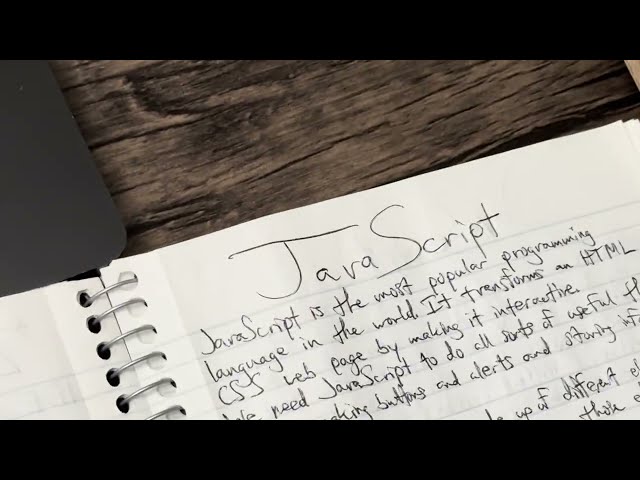 JavaScript
JavaScript is the most popular programming
language in the world. It transforms an HTML
CSS web page by making it interactive.
We need JavaScript to do all sorts of useful
buttons and alerts and storing
up of different
those